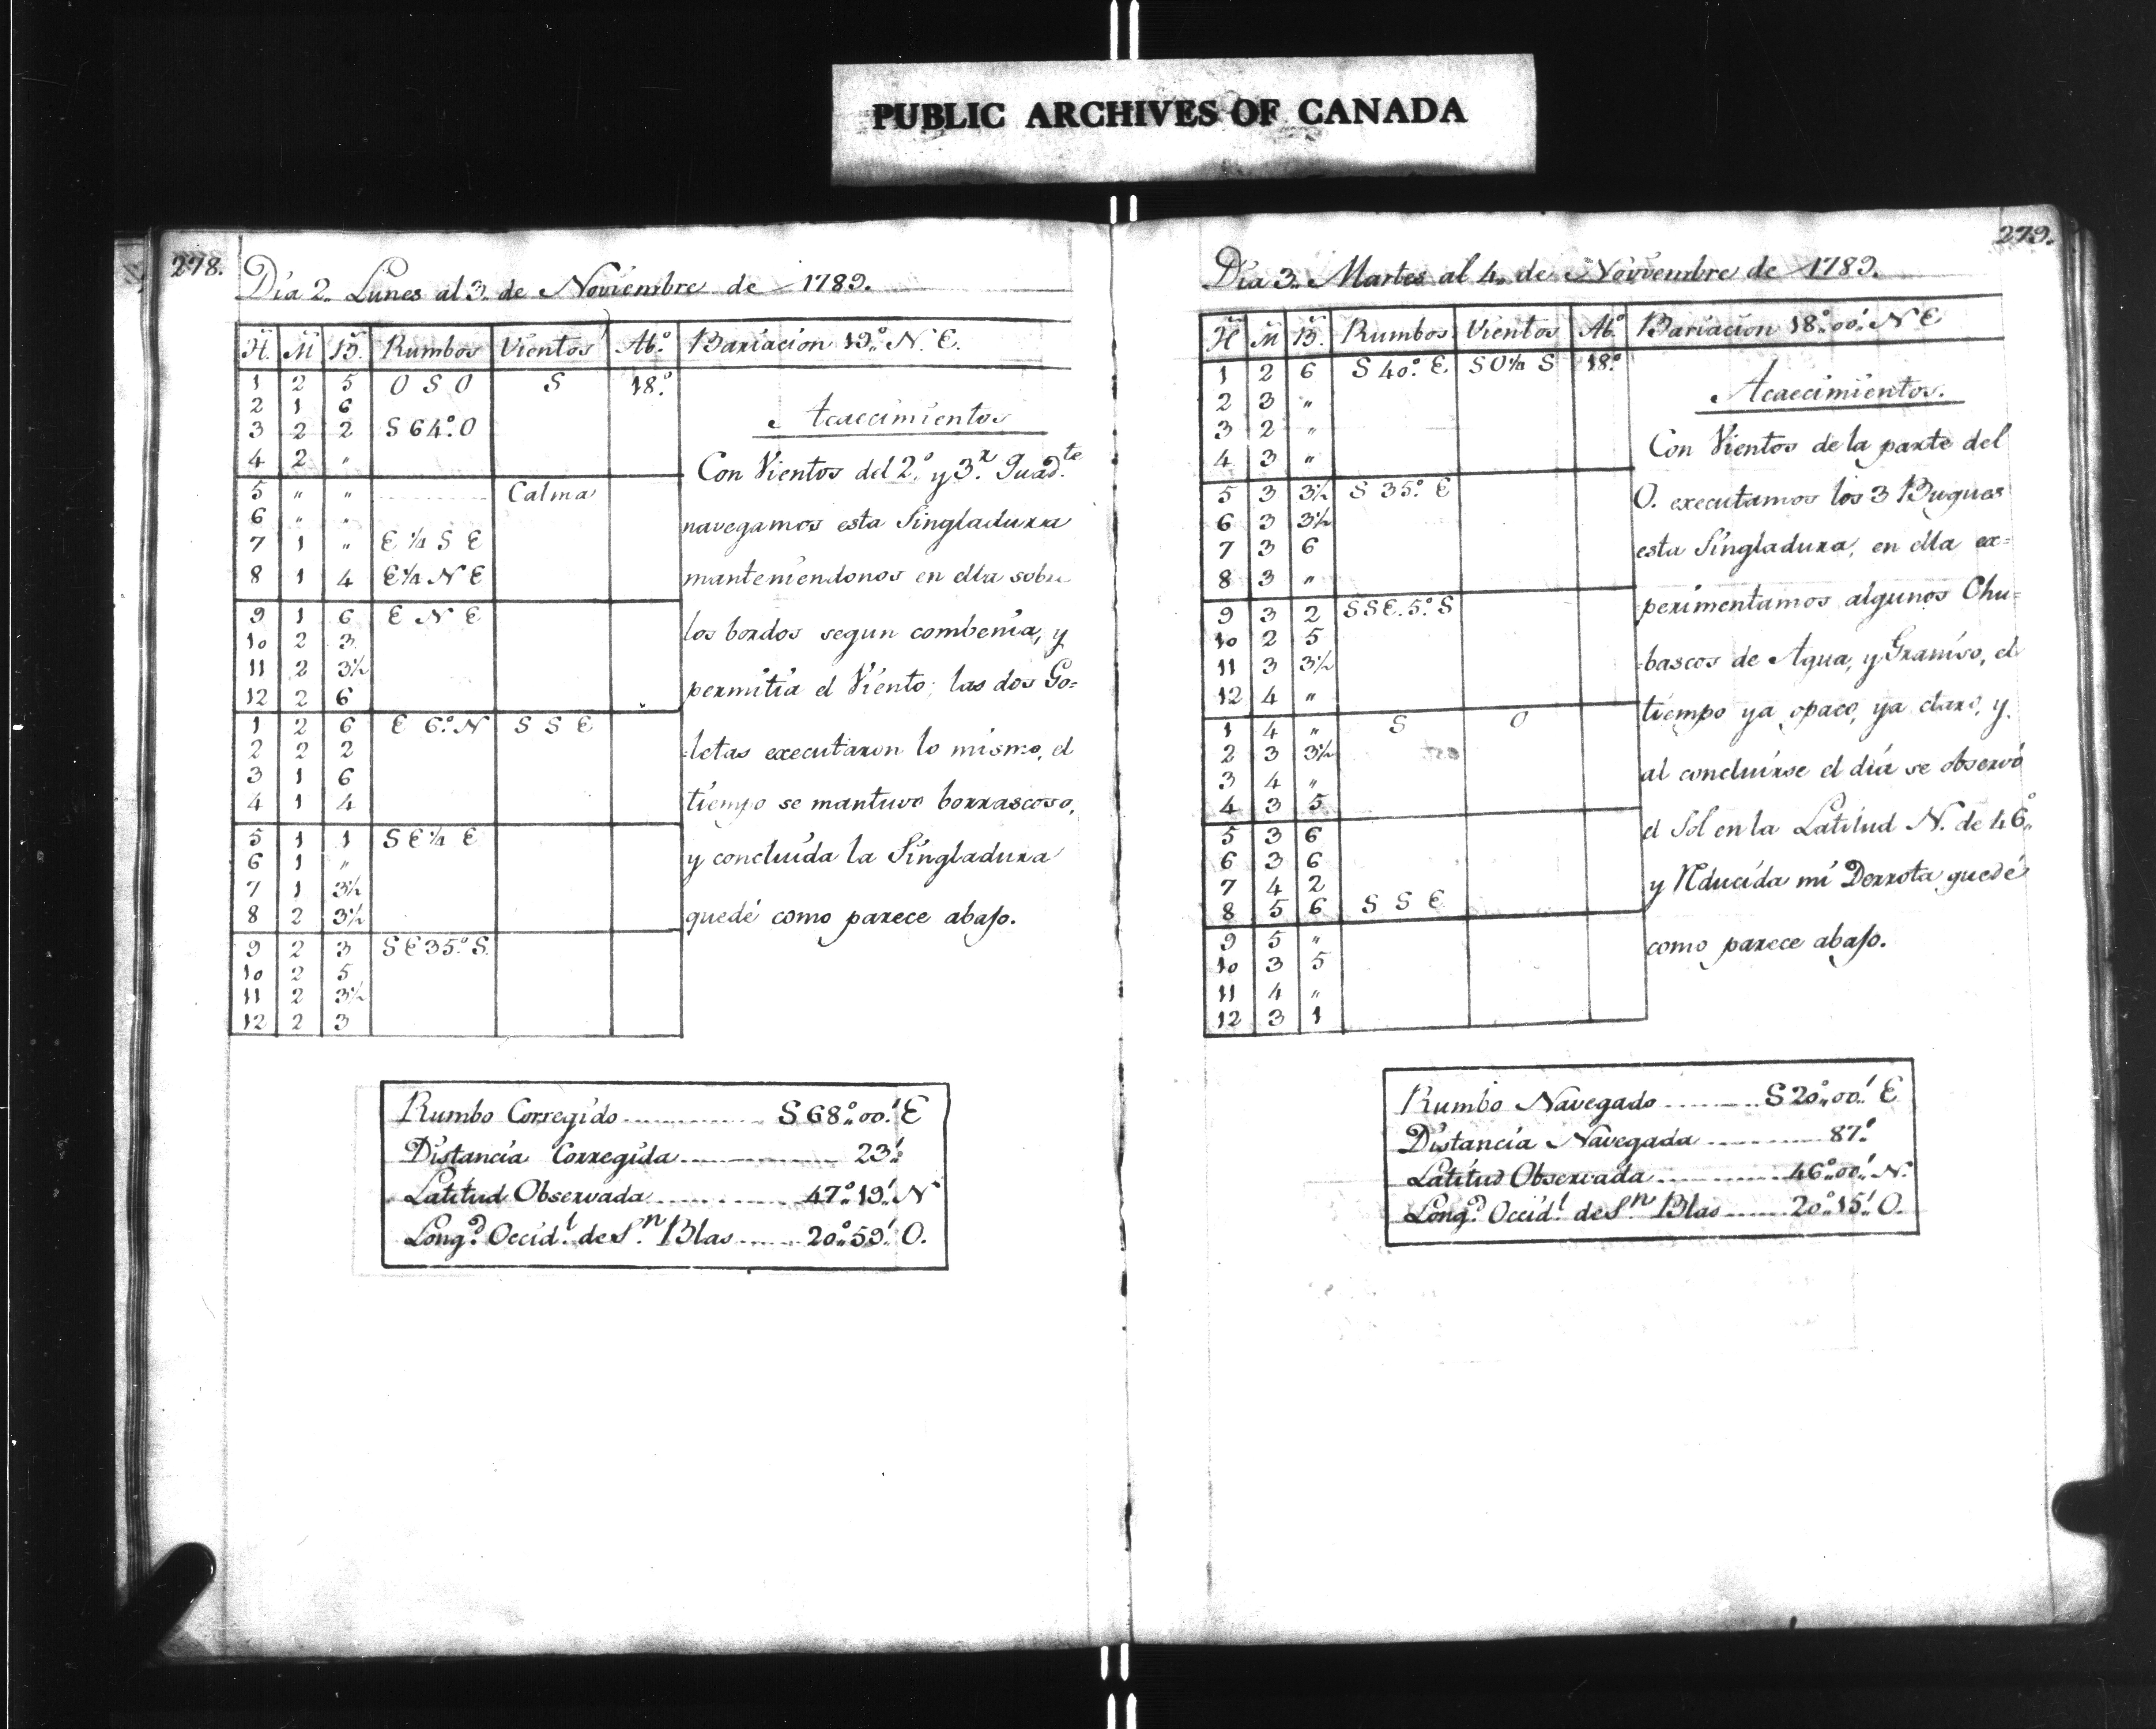 PUBLIC ARCHIVES OF CANADA
278.
Dia 2,, Lunes al 3,, de Noviembre de 1789.
H. M B. Rumbos Vientos Ab.º Bariacion 19,,º N. E.
1 2 5 O S O S 18.º
2 1 6
3 2 2 S 64.º O
4 2 „
5 „ „ Calma
6 „ „
7 1 „ E ¼ S E
8 1 4 E ¼ N E
9 1 6 E N E
10 2 3
11 2 3½
12 2 6
1 2 6 E 6.º N S S E
2 2 2
3 1 6
4 1 4
5 1 1 S E ¼ E
6 1 „
7 1 3½
8 2 3½
9 2 3 S E 35.º S.
10 2 5
11 2 3½
12 2 3
Acaecimientos
Con Vientos del 2.º y 3.r Quad.te
navegamos esta Singladura
manteniendonos en ella sobre
los bordos segun combenia, y
permitia el Viento; las dos Go=
=letas executaron lo mismo, el
tiempo se mantuvo borrascoso,
y concluida la Singladura
quedé como parece abajo.
Rumbo Corregido ........ S 68,,º 00,,' E
Distancia Corregida ........ 23,,'
Latitud Observada ........ 47,,º 19,,' N
Long.d Occid.l de S.n Blas ...... 20,,º 59,,' O.
279.
Dia 3,, Martes al 4,, de Noviembre de 1789.
H M B. Rumbos Vientos Ab.º Bariacion 18,,º 00,,' N E
1 2 6 S 40.º E. S O ¼ S 18.º
2 3 „
3 2 „
4 3 „
5 3 3½ S 35.º E
6 3 3½
7 3 6
8 3 „
9 3 2 S S E. 5.º S
10 2 5
11 3 3½
12 4 „
1 4 „ S O
2 3 3½
3 4 „
4 3 5
5 3 6
6 3 6
7 4 2
8 5 6 S S E
9 5 „
10 3 5
11 4 „
12 3 1
Acaecimientos.
Con Vientos de la parte del
O. executamos los 3 Buques
esta Singladura, en ella ex=
perimentamos algunos Chu=
=bascos de Agua, y Graniso, el
tiempo ya opaco, ya claro, y
al concluirse el dia se observó
el Sol en la Latitud N. de 46,,º
y Reducida mi Derrota quedé
como parece abajo.
Rumbo Navegado ........ S 20,,º 00,,' E
Distancia Navegada ........ 87,,º
Latitud Observada ........ 46,,º 00,,' N.
Long.d Occid.l de S.n Blas ...... 20,,º 15,,' O.